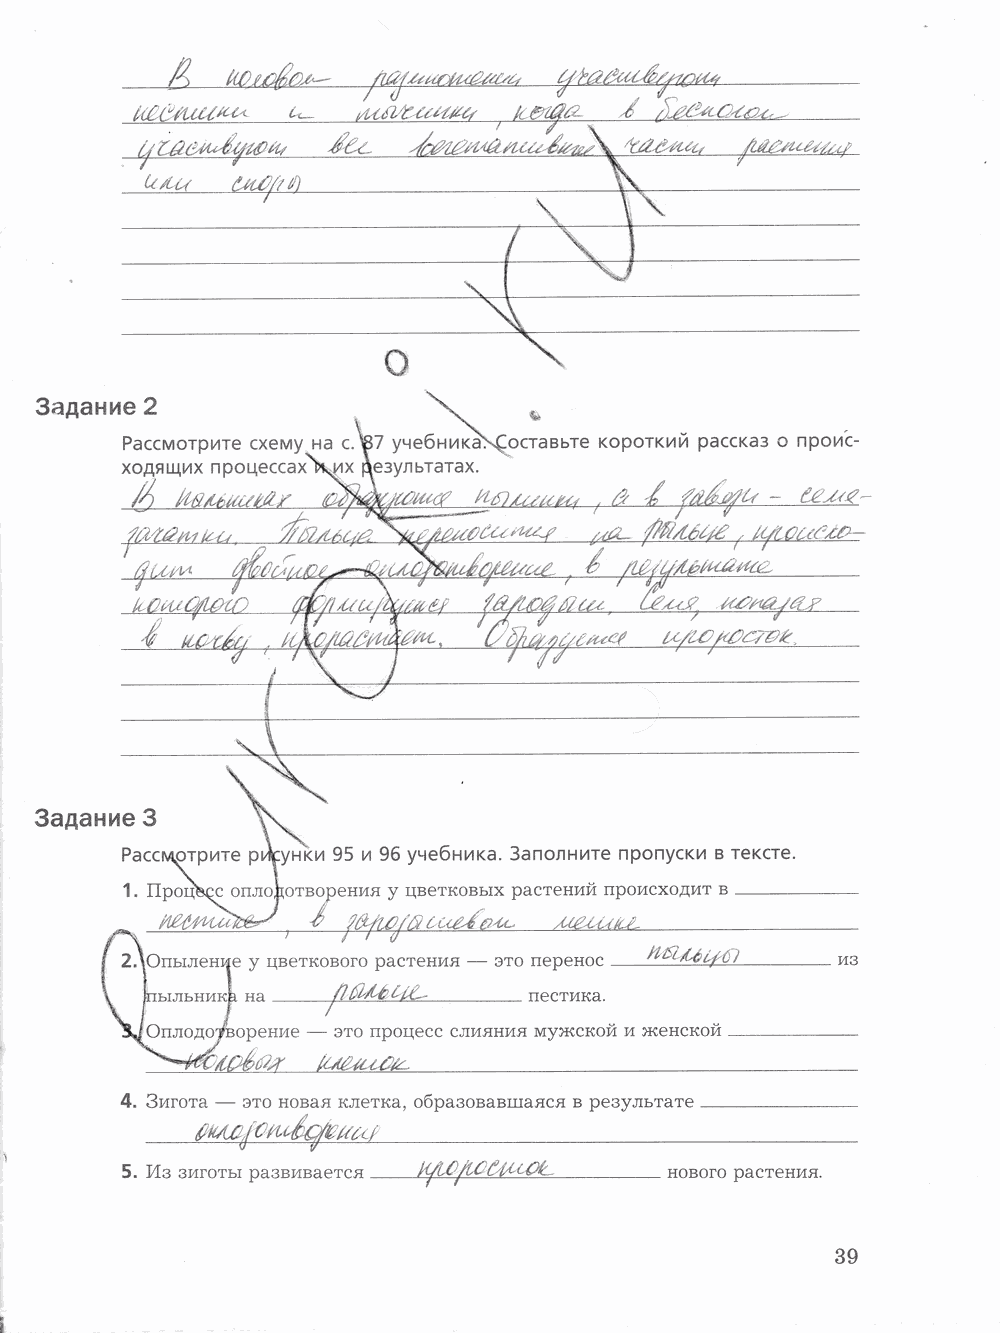 В половом размножении участвуют
пестики и тычинки, когда в бесполом
участвуют все вегетативные части растения
или споры
Задание 2
Рассмотрите схему на с. 87 учебника. Составьте короткий рассказ о проис-
ходящих процессах и их результатах.
В пыльниках образуются пылинки, а в завязи – семе-
зачатки. Пыльца переносится на рыльце, происхо-
дит двойное оплодотворение, в результате
которого формируется зародыш. Семя, попадая
в почву, прорастает. Образуется проросток.
Задание 3
Рассмотрите рисунки 95 и 96 учебника. Заполните пропуски в тексте.
1. Процесс оплодотворения у цветковых растений происходит в
пестике, в зародышевом мешке
2. Опыление у цветкового растения — это перенос пыльцы из
пыльника на рыльце пестика.
3. Оплодотворение — это процесс слияния мужской и женской
половых клеток
4. Зигота — это новая клетка, образовавшаяся в результате
оплодотворения
5. Из зиготы развивается проросток нового растения.
39